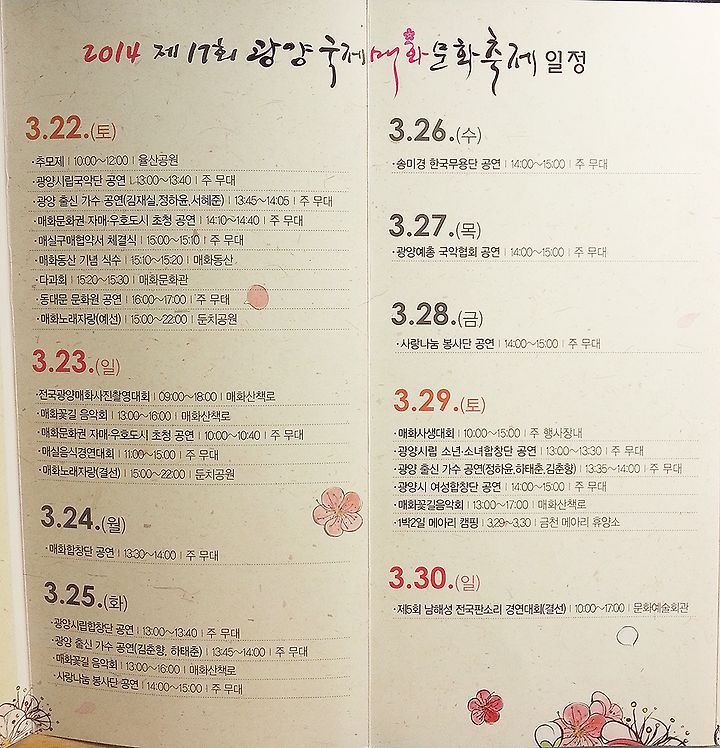 2014 제17회 광양 국제매화문화축제 일정
3.22.(토)
·추모제 | 10:00~12:00 | 율산공원
·광양시립국악단 공연 | 13:00~13:40 | 주 무대
·광양 출신 가수 공연(김재실,정하윤,서혜준) | 13:45~14:05 | 주 무대
·매화문화권 자매·우호도시 초청 공연 | 14:10~14:40 | 주 무대
·매실구매협약서 체결식 | 15:00~15:10 | 주 무대
·매화동산 기념 식수 | 15:10~15:20 | 매화동산
·다과회 | 15:20~15:30 | 매화문화관
·동대문 문화원 공연 | 16:00~17:00 | 주 무대
·매화노래자랑(예선) | 15:00~22:00 | 둔치공원
3.23.(일)
·전국광양매화사진촬영대회 | 09:00~18:00 | 매화산책로
·매화꽃길 음악회 | 13:00~16:00 | 매화산책로
·매화문화권 자매·우호도시 초청 공연 | 10:00~10:40 | 주 무대
·매실음식경연대회 | 11:09~15:00 | 주 무대
·매화노래자랑(결선) | 15:00~22:00 | 둔치공원
3.24.(월)
·매화합창단 공연 | 13:30~14:00 | 주 무대
3.25.(화)
·광양시립합창단 공연 | 13:00~13:40 | 주 무대
·광양 출신 가수 공연(김춘향, 하태춘) | 13:45~14:00 | 주 무대
·매화꽃길 음악회 | 13:00~16:00 | 매화산책로
·사랑나눔 봉사단 공연 | 14:00~15:00 | 주 무대
3.26.(수)
·송미경 한국무용단 공연 | 14:00~15:00 | 주 무대
3.27.(목)
·광양예총 국악협회 공연 | 14:00~15:00 | 주 무대
3.28.(금)
·사랑나눔 봉사단 공연 | 14:00~15:00 | 주 무대
3.29.(토)
·매화사생대회 | 10:00~15:00 | 주 행사장내
·광양시립 소년·소녀합창단 공연 | 13:00~13:30 | 주 무대
·광양 출신 가수 공연(정하윤,하태춘,김춘향) | 13:35~14:00 | 주 무대
·광양시 여성합창단 공연 | 14:00~15:00 | 주 무대
·매화꽃길음악회 | 13:00~17:00 | 매화산책로
·1박2일 메아리 캠핑 | 3.29~3.30 | 금천 메아리 휴양소
3.30.(일)
·제5회 남해성 전국판소리 경연대회(결선) | 10:00~17:00 | 문화예술회관